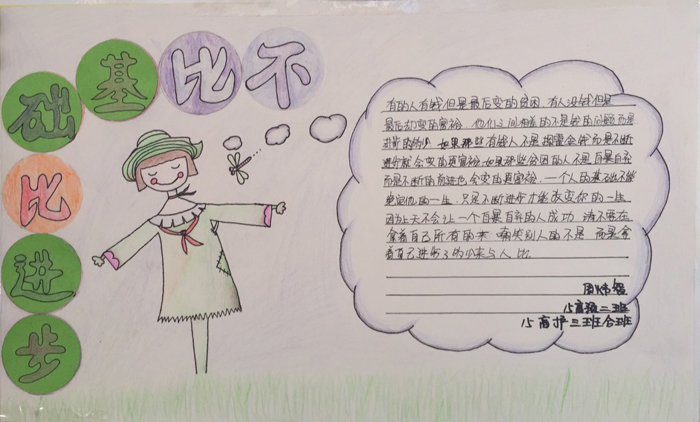 不比基础
比进步
有的人有钱但是最后变的贫困，有人没钱但是
最后却变的富裕，他们之间相差的不是钱的问题而是
如果那些有钱人不是挥霍金钱而是不断
进步就会变的更富裕 如果那些贫困的人不是自暴自弃
而是不断的前进也会变的更富裕，一个人的基础不能
决定他的一生，只是不断进步才能改变你的一生
因为上天不会让一个自暴自弃的人成功，请不要在
拿着自己所有的来嘲笑别人的不是，而是拿
着自己进步了的来与人比
15高护三班合班